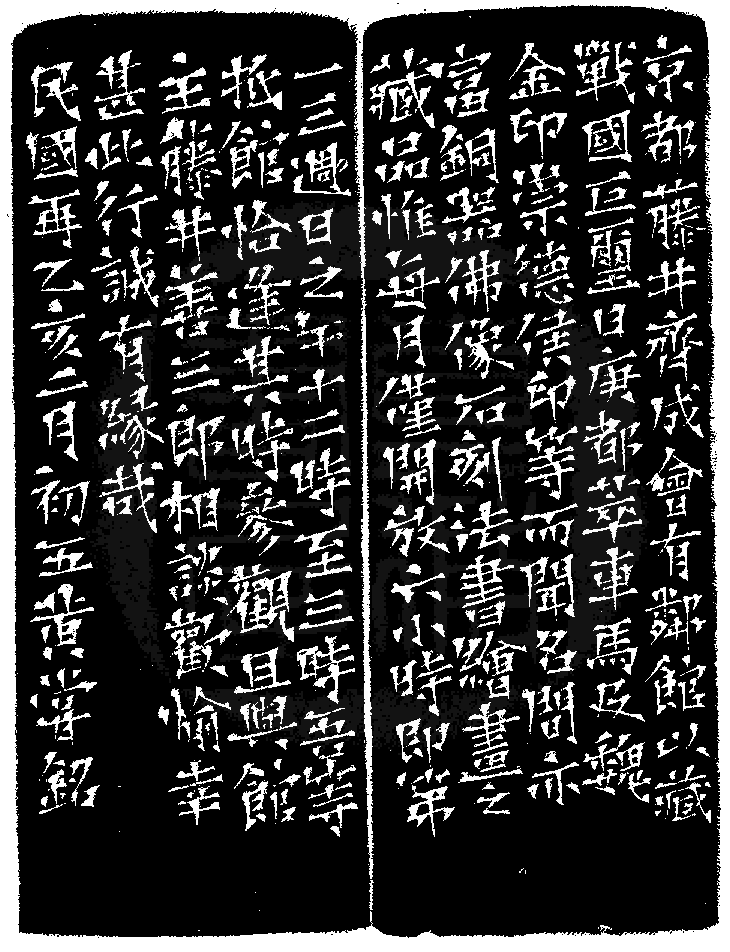 京都藤井齊成會有鄰館以藏
戰國巨璽日庚都萃車馬及魏
金印崇德侯印等而聞名間亦
富銅器佛像石刻法書繪畫之
藏品惟每月僅開放六小時即第
一三週日之午十二時至三時吾等
抵館恰逢其時參觀且與館
主藤井善三郎相談歡愉幸
甚此行誠有緣哉
民國再乙亥二月初五黃嘗銘